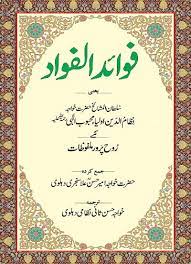 فوائد الفواد
یعنی
سلطان المشائخ حضرت خواجہ
نظام الدین اولیاء محبوب الٰہی
کے
روح پرور ملفوظات
جمع کردہ
حضرت خواجہ امیر حسن علا سنجری دہلوی
ترجمہ
خواجہ حسن ثانی نظامی دہلوی